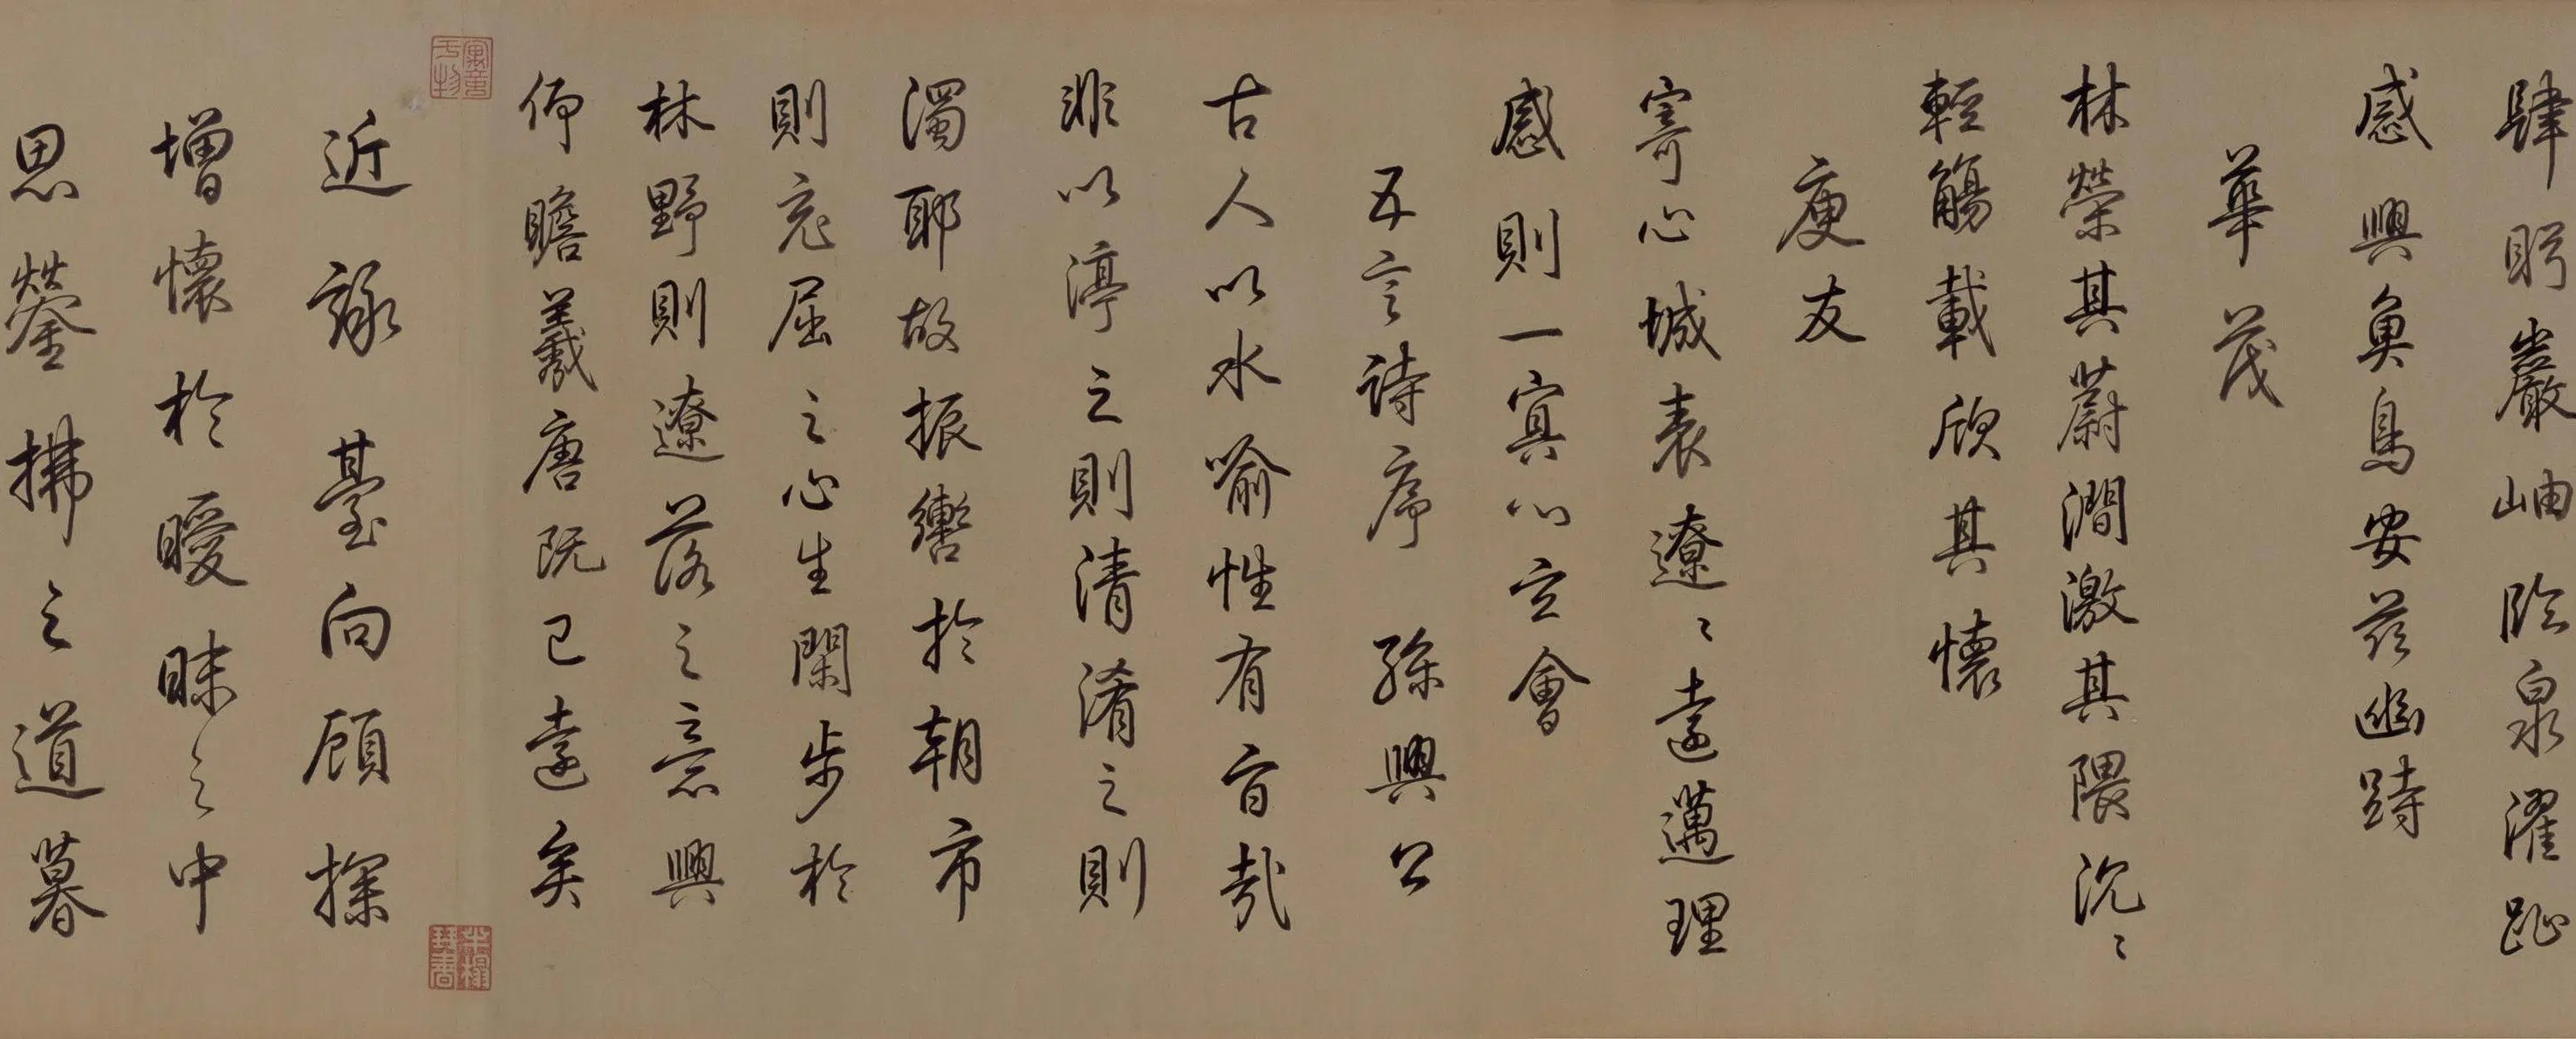 肆眄巖岫臨泉濯趾
感興魚鳥安茲幽跱
華茂
林榮其蔚澗激其隈汎〻
輕觴載欣其懷
庾友
寄心域表遼〻遠邁理
感則一冥心玄會
五言詩序 孫興公
古人以水喻性有旨哉
非以渟之則清淆之則
濁耶故振轡於朝市
則充屈之心生閑步於
林野則遼落之意興
仰瞻羲唐既已遠矣
近詠臺向顧探
增懷於曖昧之中
思縈拂之道暮